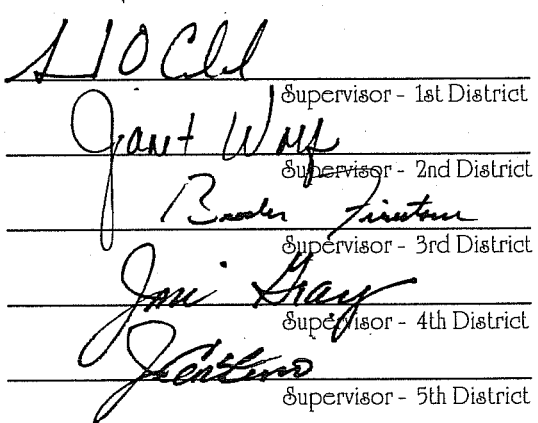 Supervisor - 1st District
Janet Wolf
Supervisor - 2nd District
Brooks Firestone
Supervisor - 3rd District
Joni Gray
Supervisor - 4th District
J Centeno
Supervisor - 5th District